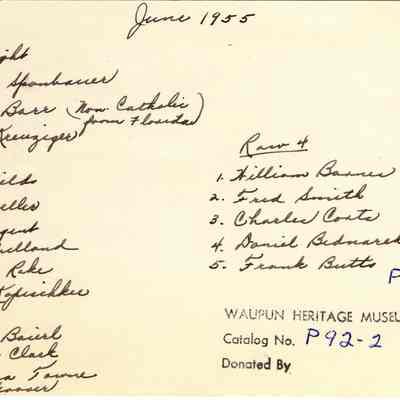 June 1955
ght
Sponbauer
Barr (Non Catholic
from Florida)
Kreuziger
elds
eller
gent
elland
Rake
Kopischke
Baierl
Clark
Towne
Row 4
1. William Barnes
2. Fred Smith
3. Charles Coats
4. Daniel Bednarek
5. Frank Butts
P
WAUPUN HERITAGE MUSEU
Catalog No. P92-2
Donated By